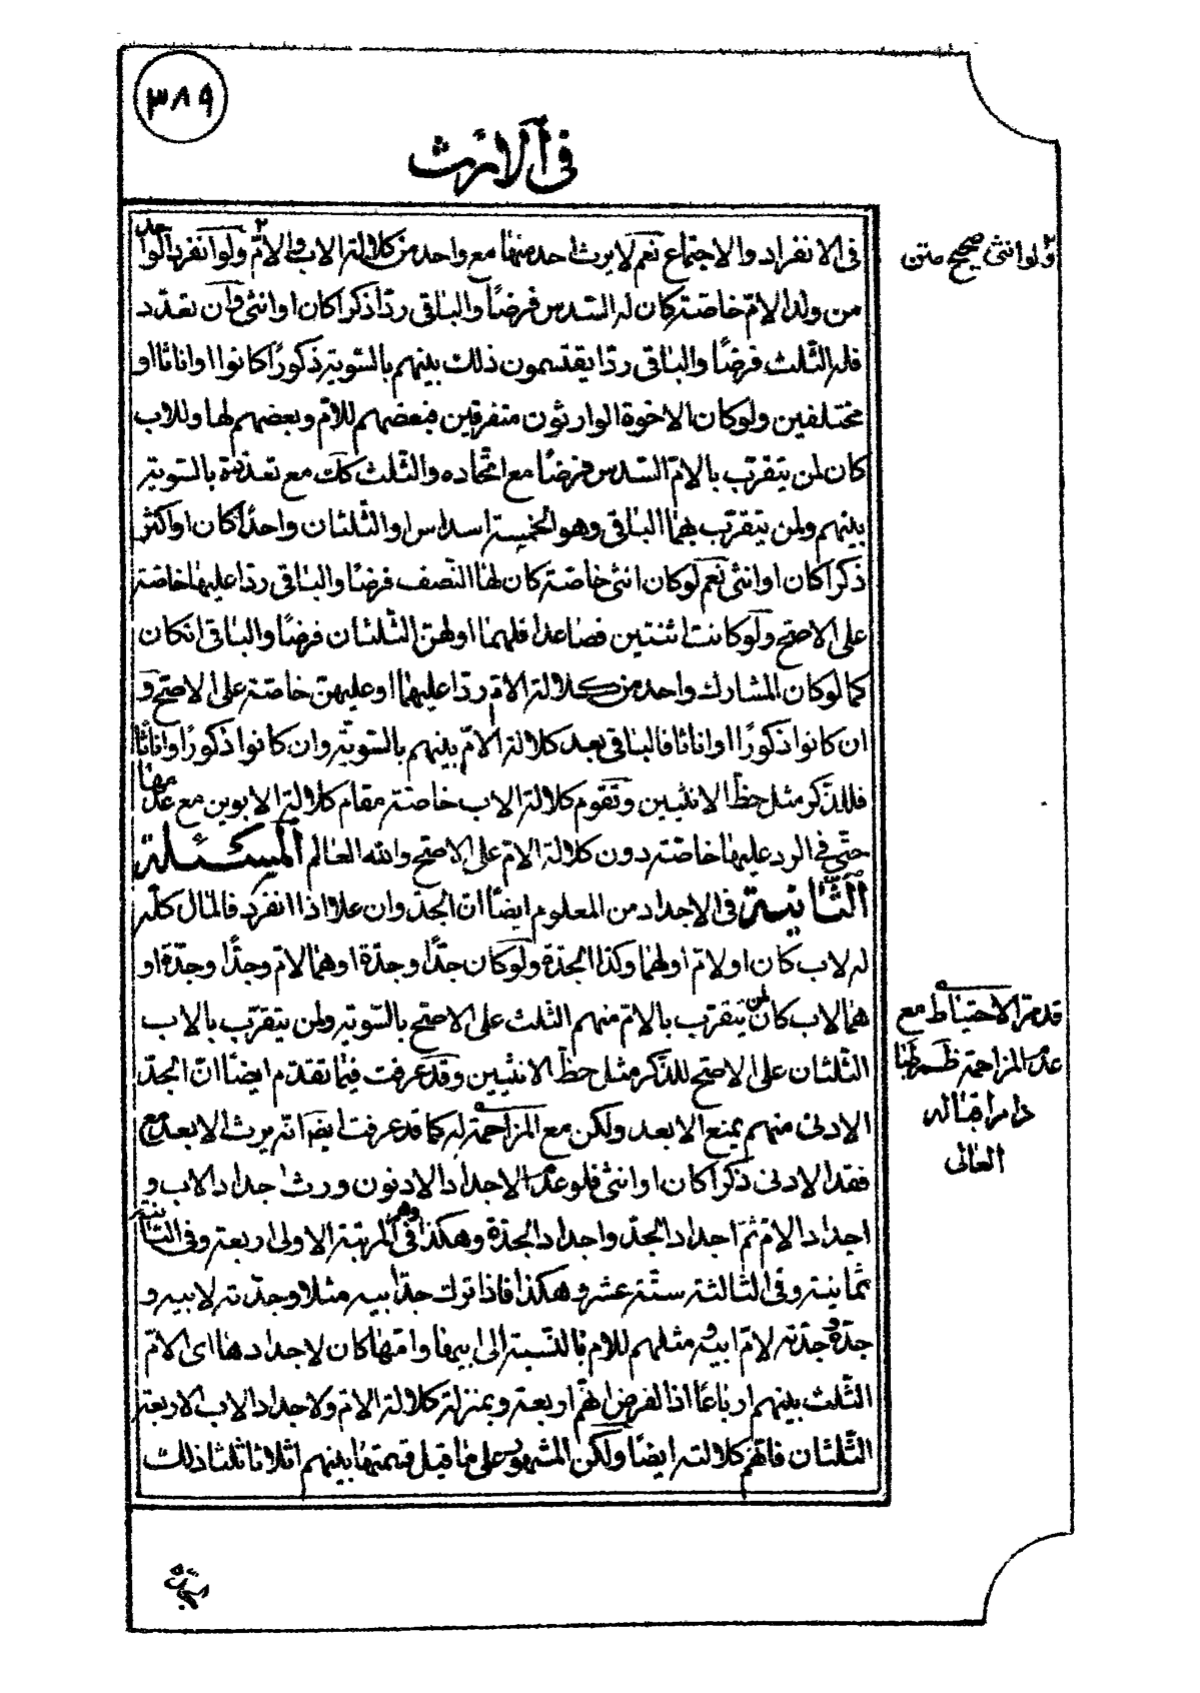 ٣٨٩
فى الارث
فى الانفراد والاجتماع نعم لا يرث احد منهما مع واحد من كلالة الاب والام ٢ ولو انفرد الواحد
ولو انثى صحيح متن
من ولد الامّ خاصّة كان له السّدس فرضًا والباقى ردّا ذكرا كان او انثى وان تعدّد
فله الثّلث فرضًا والباقى ردّا يقتسمون ذلك بينهم بالسّوية ذكورًا كانوا او اناثا او
مختلفين ولو كان الاخوة الوارثون متفرقين فبعضهم للامّ وبعضهم لها وللاب
كان لمن يتقرّب بالامّ السّدس فرضًا مع اتّحاده والثّلث كك مع تعدّده بالسّوية
بينهم ولمن يتقرّب بهما الباقى وهو الخمسة اسداس او الثّلثان واحدًا كان او اكثر
ذكرا كان او انثى نعم لو كان انثى خاصّة كان لها النّصف فرضًا والباقى ردّا عليها خاصّة
على الاصحّ ولو كانت اثنتين فصاعدا فلهما او لهنّ الثّلثان فرضًا والباقى ان كان
كما لو كان المشارك واحد من كلالة الامّ ردّا عليهما او عليهنّ خاصّة على الاصحّ و
ان كانوا ذكورًا او اناثا فالباقى بعد كلالة الامّ بينهم بالسّويّة وان كانوا ذكورًا واناثًا
فللذّكر مثل حظّ الانثيين وتقوم كلالة الاب خاصّة مقام كلالة الابوين مع عدمها
حتّى فى الرد عليها خاصّة دون كلالة الامّ على الاصحّ والله العالم المسئلة
الثّانية فى الاجداد من المعلوم ايضًا انّ الجدّ وان علا اذا انفرد فالمال كلّه
له لاب كان او لامّ او لهما وكذا الجدّة ولو كان جدّا وجدّة او هما لامّ وجدًّا وجدّة او
هما لاب كان لمن يتقرب بالامّ منهم الثلث على الاصحّ بالسّوية ولمن يتقرّب بالاب
الثّلثان على الاصحّ للذّكر مثل حظّ الانثيين وقد عرفت فيما تقدّم ايضًا انّ الجدّ
الادنى منهم يمنع الابعد ولكن مع المزاحمة له كما قد عرفت ايضا انّه يرث الابعد مع
قد مرّ الاحتياط مع
عدم المزاحمة
دام اقباله
العالى
فقد الادنى ذكرا كان او انثى فلو عدم الاجداد الادنون ورث اجداد الاب و
اجداد الامّ ثمّ اجداد الجدّ واجداد الجدّة وهكذا وهم فى المرتبة الاولى اربعة وفى الثّانية
ثمانية وفى الثالثة ستّة عشر وهكذا فاذا ترك جدّ ابيه مثلا وجدّته لابيه و
جدّه وجدّته لامّ ابيه ومثلهم للام بالنّسبة الى ابيها وامّها كان لاجدادها اى الامّ
الثّلث بينهم ارباعًا اذ الفرض انّهم اربعة وبمنزلة كلالة الامّ ولاجداد الاب الاربعة
الثّلثان فانّهم كلالته ايضًا ولكن المشهور على ما قيل قسمتها بينهم اثلاثا ثلثا ذلك